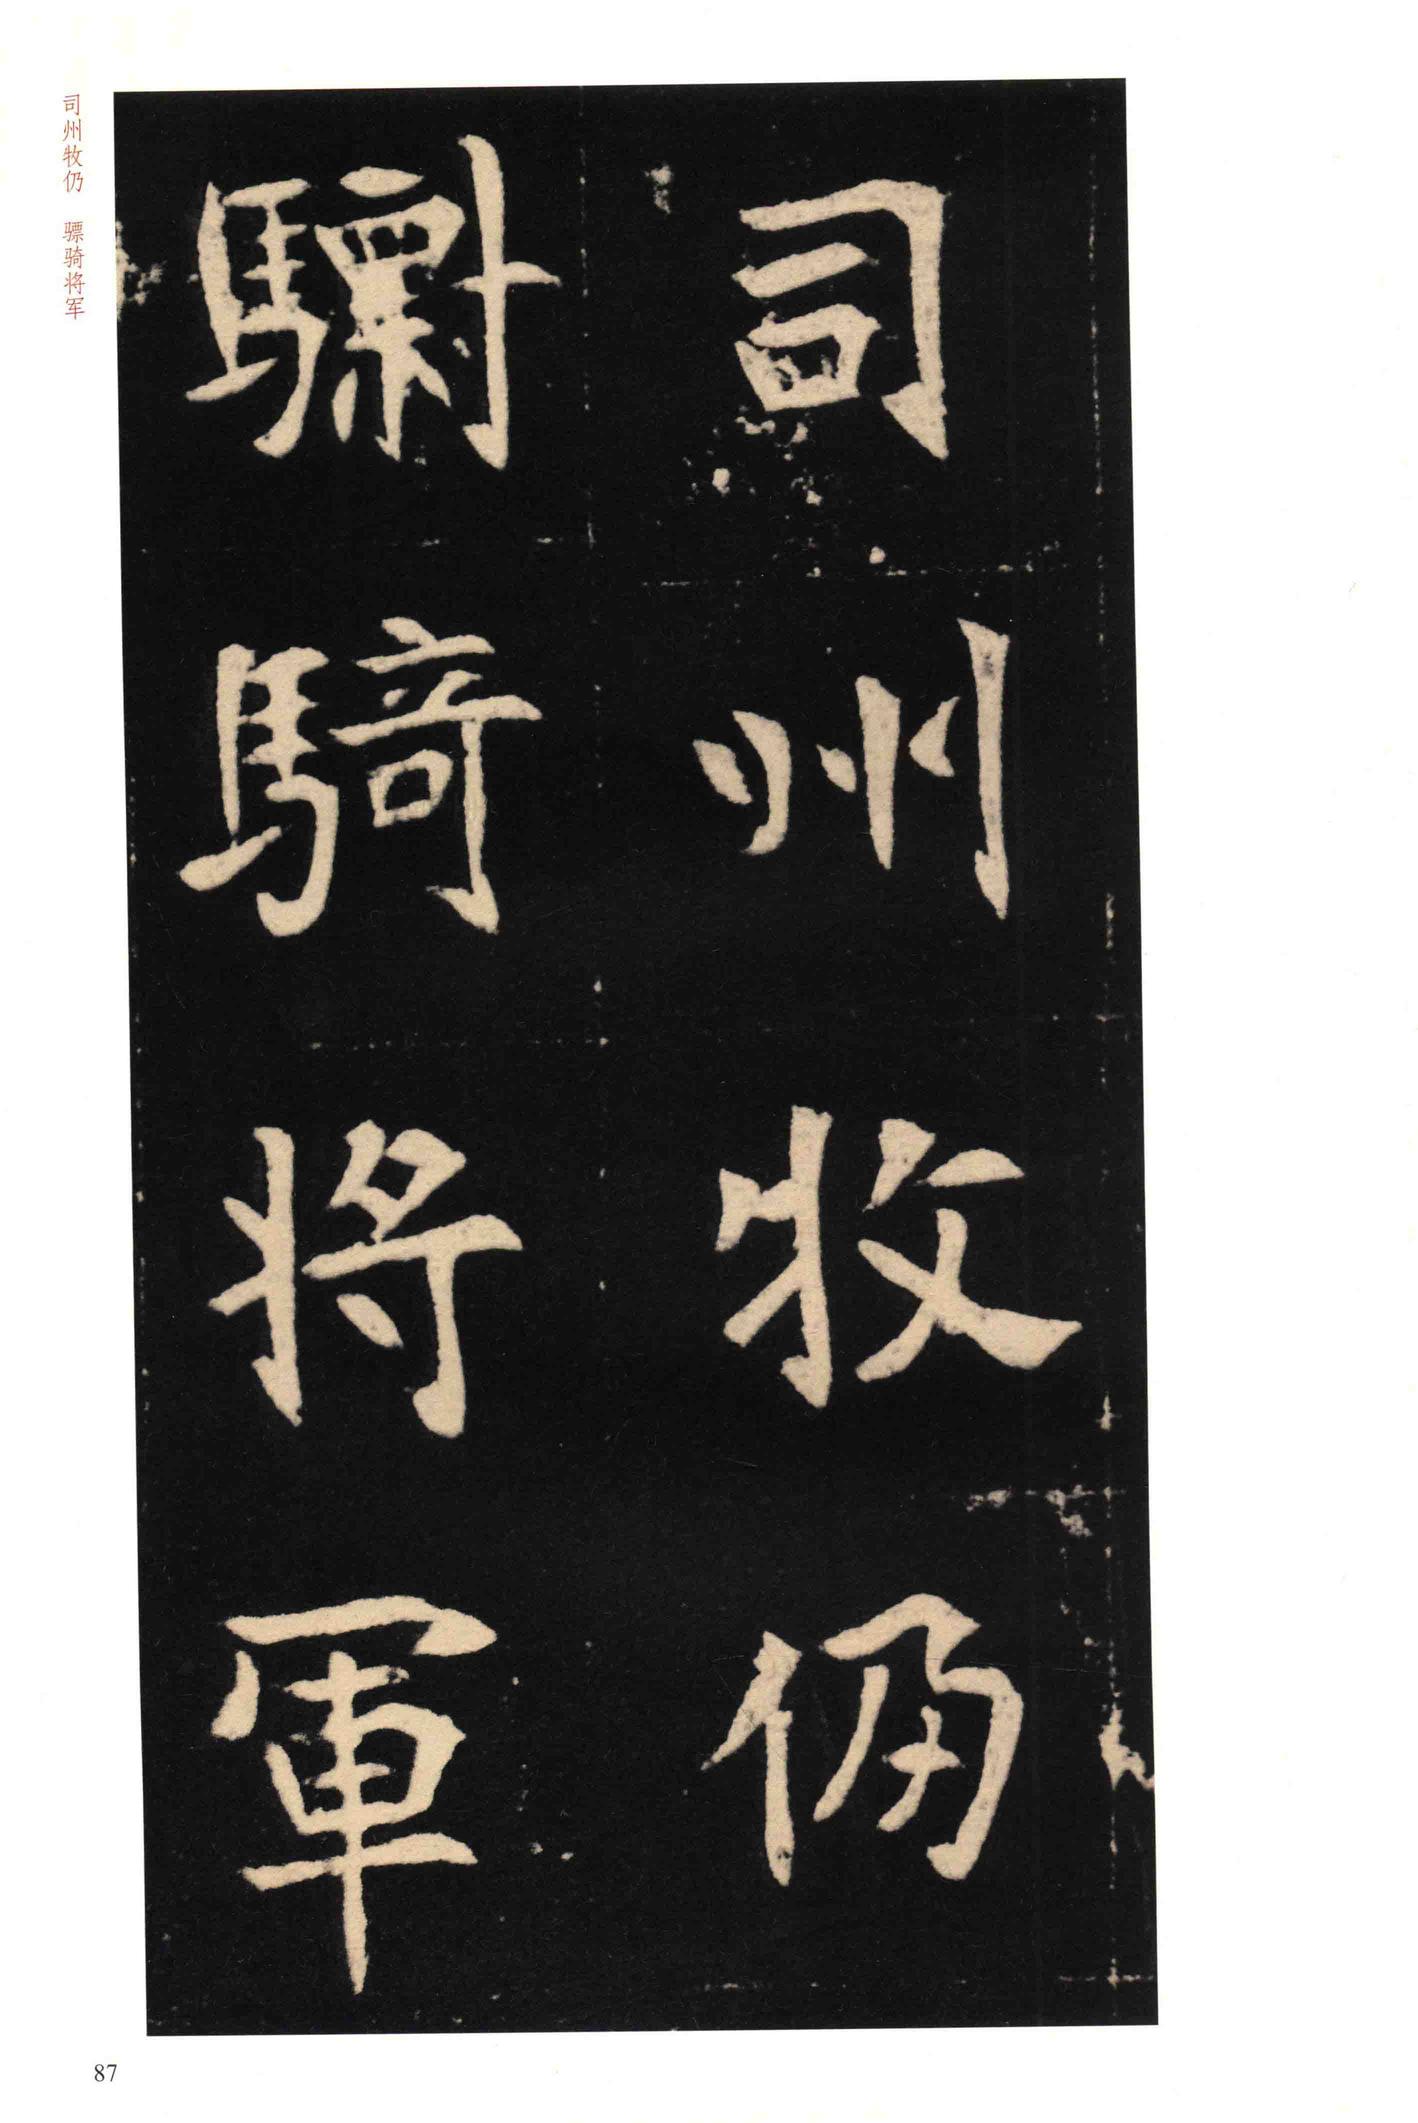 司州牧仍
驃騎將軍
司州牧仍 骠骑将军
87